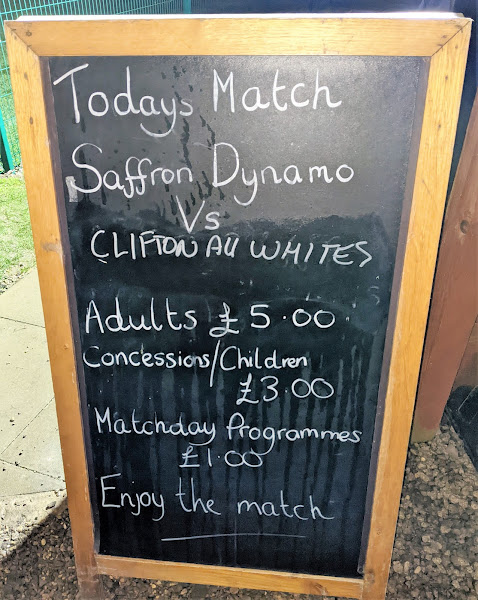 Todays Match
Saffron Dynamo
Vs
CLIFTON All WHITES
Adults £5.00
Concessions/Children
£3.00
Matchday Programmes
£1.00
Enjoy the match